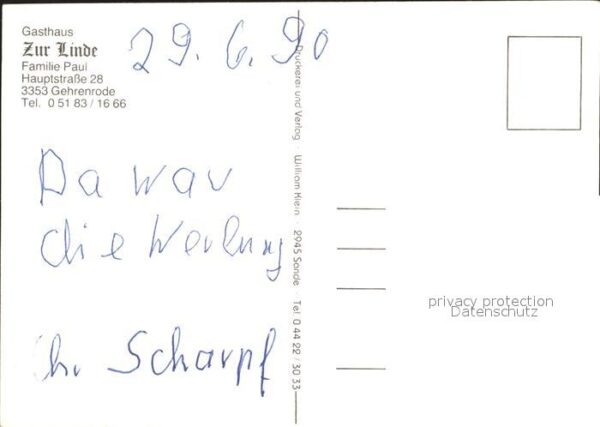 Gasthaus
Zur Linde
Familie Paul
Hauptstraße 28
3353 Gehrenrode
Tel. 0 51 83 / 16 66
29. 6. 90
Da war
die Werbung
Hr. Scharpf
Druckerei und Verlag · William Klein · 2945 Sande · Tel. 0 44 22 / 30 33
privacy protection
Datenschutz